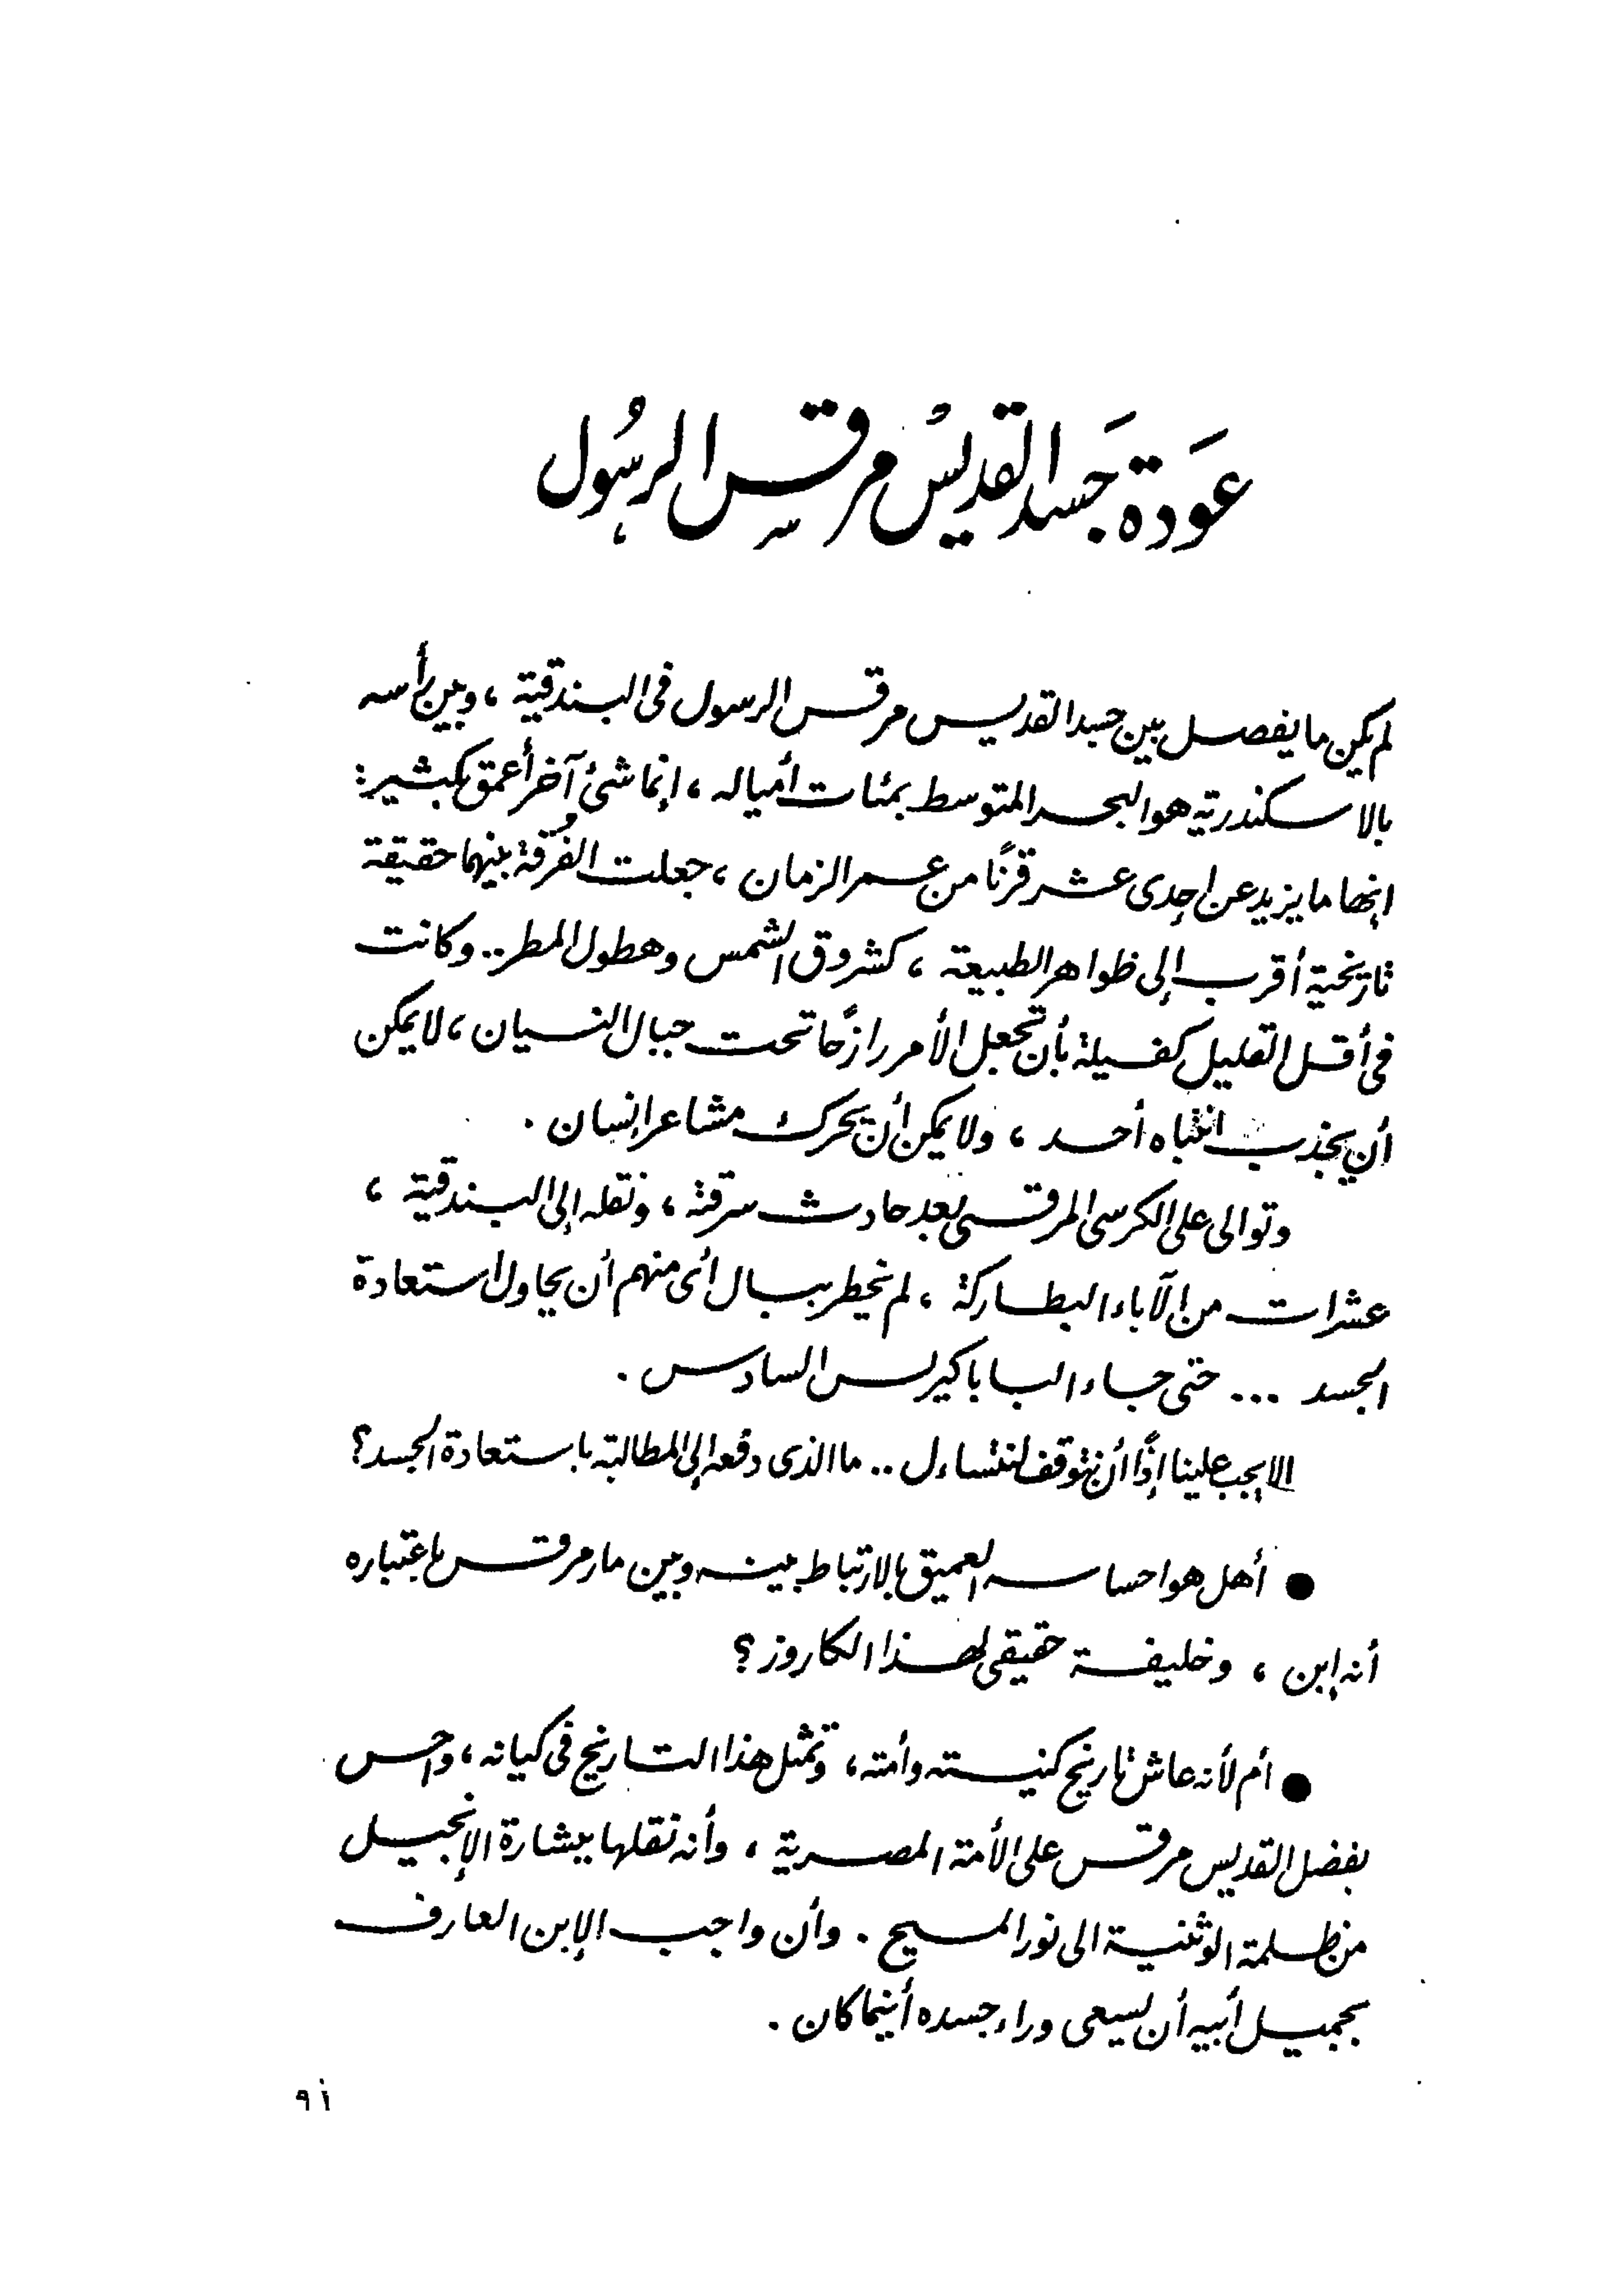 عَودة جَسد القديس مرقس الرسُول
لم يكن ما يفصل بين جسد القديس مرقس الرسول فى البندقية ، وبين رأسه
بالاسكندرية هو البحر المتوسط بمئات أمياله ، إنما شئ آخر أعمق بكثير :
إنها ما يزيد عن إحدى عشر قرنًا من عمر الزمان ، جعلت الفُرقة بينهما حقيقة
تاريخية أقرب إلى ظواهر الطبيعة ، كشروق الشمس وهطول المطر .. وكانت
فى أقل القليل كفيلة بأن تجعل الأمر رازحًا تحت جبال النسيان ، لا يمكن
أن يجذب انتباه أحد ، ولا يمكن أن يحرك مشاعر إنسان .
وتوالى على الكرسى المرقسى بعد حادث سرقته ، ونقله إلى البندقية ،
عشرات من الآباء البطاركة ، لم يخطر ببال أى منهم أن يحاول استعادة
الجسد ... حتى جاء البابا كيرلس السادس .
الا يجب علينا إذًا أن نتوقف لنتساءل .. ما الذى دفعه إلى المطالبة باستعادة الجسد ؟
● أهل هو احساسه العميق بالارتباط بينه وبين مارمرقس باعتباره
أنه إبن ، وخليفة حقيقى لهذا الكاروز ؟
● أم لأنه عاش تاريخ كنيسته وأمته ، وتمثل هذا التاريخ فى كيانه ، واحس
بفضل القديس مرقس على الأمة المصرية ، وأنه نقلها ببشارة الإنجيل
من ظلمة الوثنية الى نور المسيح . وأن واجب الإبن العارف
بجميل أبيه أن يسعى وراء جسده أينما كان .
٩١